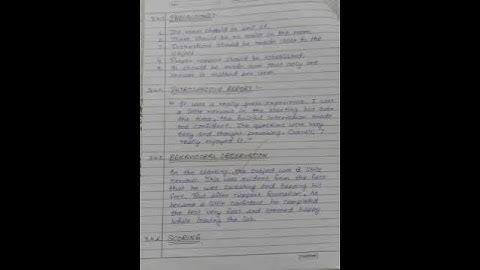 PRECAUTIONS:
1. The room should be well lit.
2. There should be no noise in the room.
3. Instructions should be made clear to the
subject.
4. Proper rapport should be established.
5. It should be made sure that only one
answer is marked per item.
INTROSPECTIVE REPORT:-
"It was a really great experience. I was
a little nervous in the starting but over
the time, the helpful instructions made
me confident. The questions were very
easy and thought provoking. Overall, I
really enjoyed it."
BEHAVIOURAL OBSERVATION
In the starting, the subject was a little
nervous. This was evident from the fact
that he was sweating and tapping his
feet. But after rapport formation, he
became a little confident. He completed
the test very fast and seemed happy
while leaving the lab.
SCORING